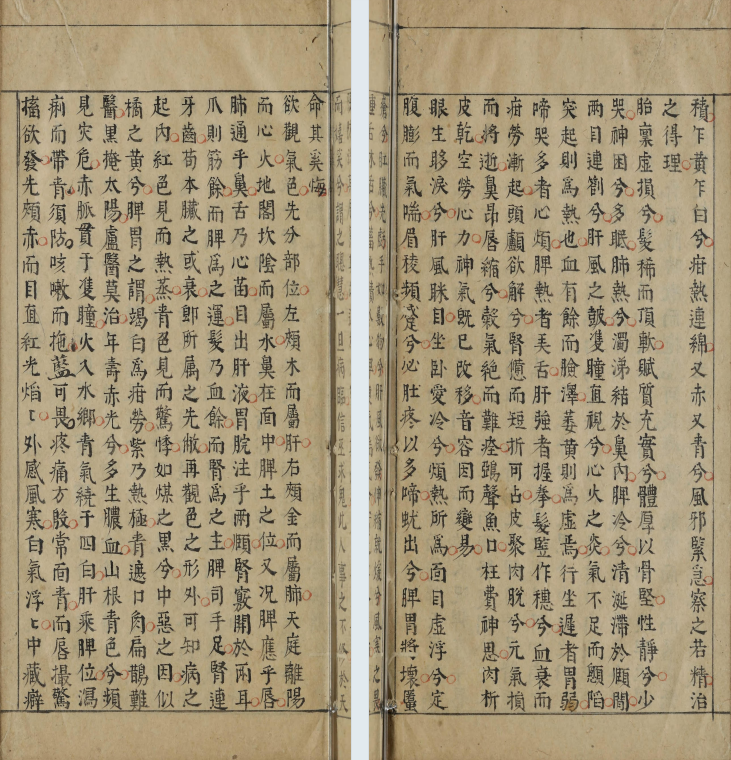 命其奚悔
欲觀氣色先分部位左頰木而屬肝右頰金而屬肺天庭離陽
而心火地閣坎陰而屬水鼻在面中脾土之位又況脾應乎唇
肺通乎鼻舌乃心苗目出肝液胃脘注乎兩頤腎竅開於兩耳
爪則筋餘而脾爲之運髮乃血餘而腎爲之主脾司手足腎連
牙齒苟本臟之或衰卽所屬之先敝再觀色之形外可知病之
起內紅色見而熱蒸青色見而驚悸如煤之黑兮中惡之因似
橘之黃兮脾胃之謂竭白爲疳勞紫乃熱極青遮口角扁鵲難
醫黑掩太陽盧醫莫治年壽赤光兮多生膿血山根青色兮頻
見灾危赤脈貫于雙瞳火入水鄉青氣繞于四白肝乘脾位瀉
痢而帶青須防咳嗽而拖藍可畏疼痛方殷常面青而唇撮驚
搐欲發先頰赤而目直紅光焰〻外感風寒白氣浮〻中藏癖
積乍黃乍白兮疳熱連綿又赤又青兮風邪緊急察之若精治
之得理
胎稟虛損兮髮稀而頂軟賦質充實兮體厚以骨堅性靜兮少
哭神困兮多眠肺熱兮濁涕結於鼻內脾冷兮清涎滯於頤間
兩目連劄兮肝風之皷雙瞳直視兮心火之炎氣不足而顖陷
突起則爲熱也血有餘而臉澤萎黃則爲虛焉行坐遲者胃弱
啼哭多者心煩脾熱者弄舌肝強者握拳髮豎作穗兮血衰而
疳勞漸起頭顱欲解兮腎憊而短折可占皮聚肉脫兮元氣損
而將逝鼻昂唇縮兮穀氣絕而難痊鴉聲魚口枉費神思肉析
皮乾空勞心力神氣既已改移音容因而變易
眼生眵淚兮肝風眯目坐卧愛冷兮煩熱所爲面目虛浮兮定
腹膨而氣喘眉稜頻蹙兮必肚疼以多啼蚘出兮脾胃將壞蠱